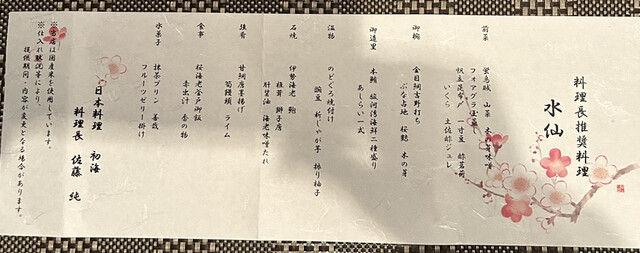 料理長推奨料理
水仙
前菜
蛍烏賊 山菜 木の芽味噌
フォアグラ玉蒸し
帆立昆布〆 一寸豆 酢茗荷
いくら 土佐酢ジュレ
御椀
金目鯛吉野打ち
ぶなしめじ 桜麩 木の芽
御造里
本鮪 駿河湾海鮮二種盛り
あしらい一式
温物
のどぐろ焼付け
豌豆 新じゃが芋 振り柚子
石焼
伊勢海老 鮑
椎茸 獅子唐
肝醤油 海老味噌たれ
強肴
甘鯛唐墨揚げ
筍饅頭 ライム
食事
桜海老釜戸御飯
赤出汁 香の物
水菓子
抹茶プリン 苺
フルーツゼリー掛け
日本料理 初海
料理長 佐藤 純
※当店は国産米を使用しています。
※仕入れ状況等により、
提供期間・内容が変更となる場合があります。